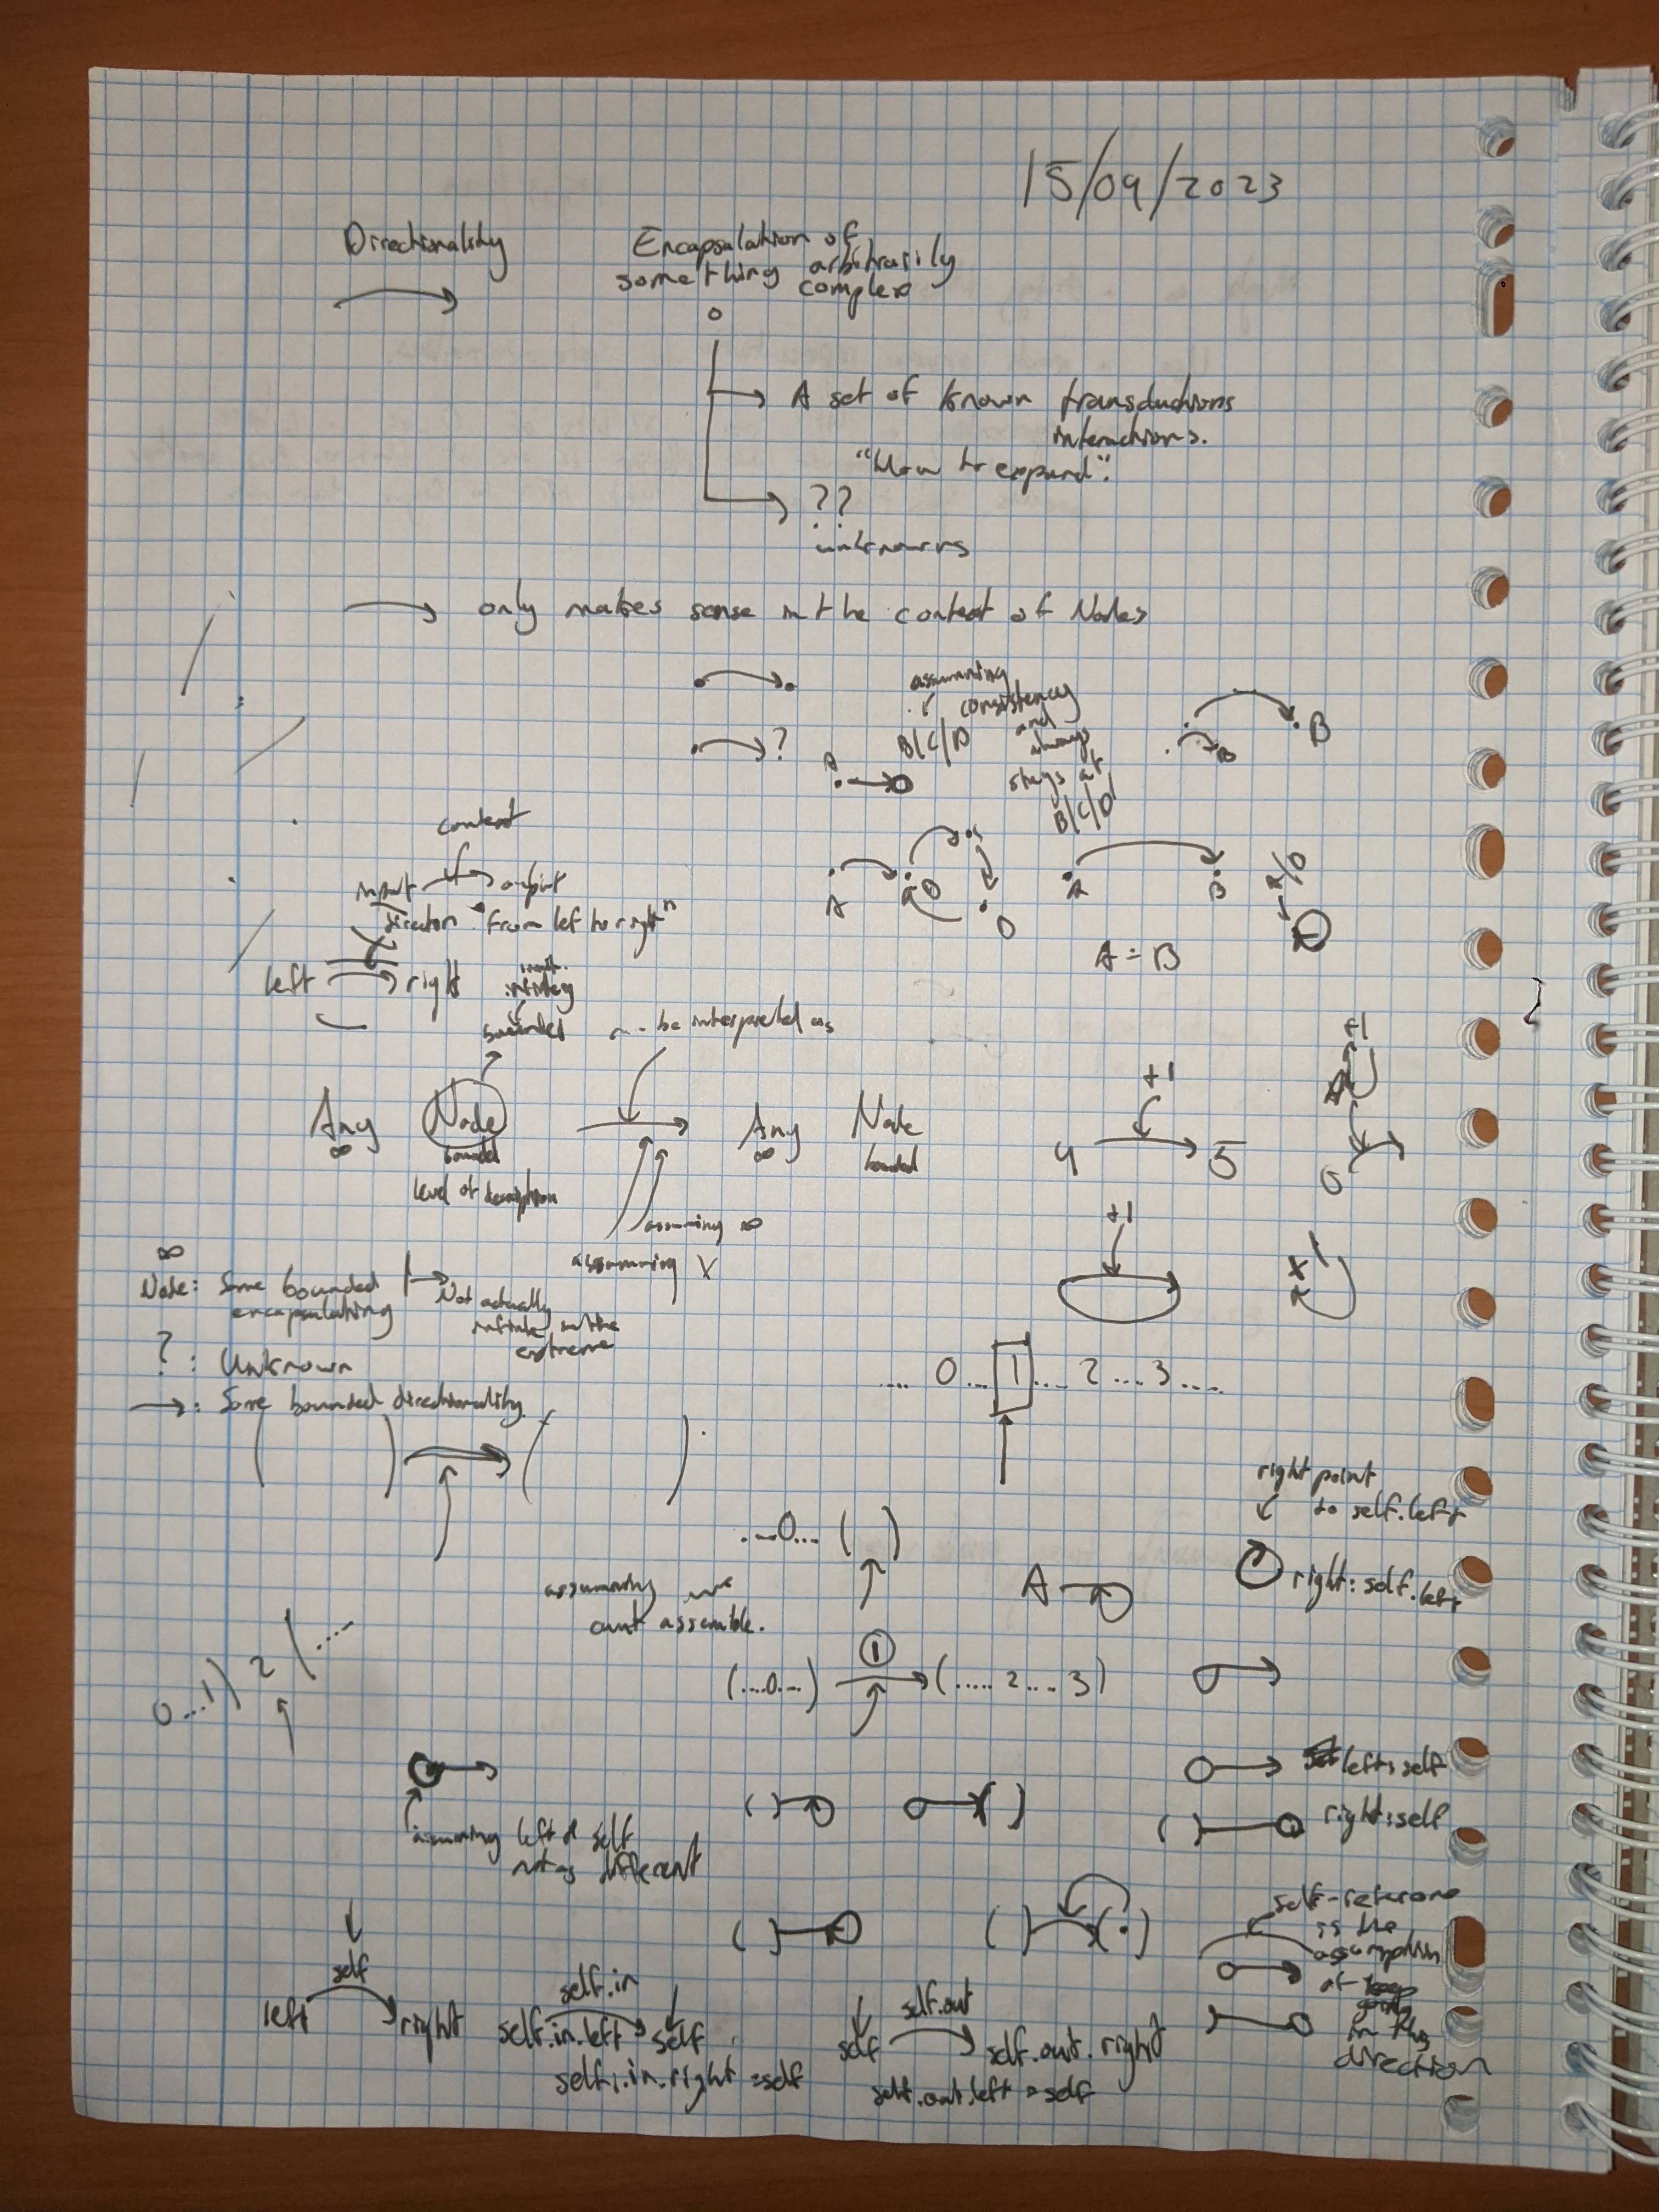 15/09/2023
Directionality
Encapsulation of
something arbitrarily
complex
A set of known transductions
interactions.
"How to expand".
??
unknowns
only makes sense in the context of Nodes
assuming
consistency
and
always
stays at
B/C/D
B/C/D
?
A
B
B
context
input
output
direction "From left to right"
left
right
A
D
A
B
A = B
bounded
be interpreted as
Any
∞
Node
bounded
level of description
Any
∞
Node
bounded
assuming ∞
assumming
+1
4
5
+1
+1
∞
Node: Some bounded
encapsulating
Not actually
infinite in the
extreme
?: Unknown
→: Some bounded directionality
.... 0 ... 1 .... 2 .... 3 ....
right point
to self.left
right: self.left
...0... ( )
A
assumming we
can't assemble.
0...1) 2 (....
(....0...)
1
(..... 2 .... 3)
left: self
right: self
assuming left & self
not as different
( )
( )
( )
( )
( ) (.)
self-reference
is the
assumption
of
point
in this
direction
self
left
right
self.in
self.in.left
self
self.in.right = self
self
self.out
self.out.right
self.out.left = self